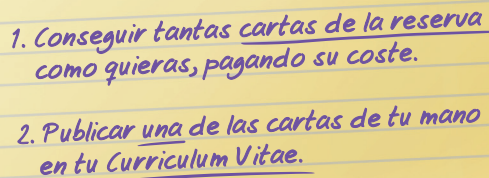 1. Conseguir tantas cartas de la reserva
como quieras, pagando su coste.
2. Publicar una de las cartas de tu mano
en tu Curriculum Vitae.